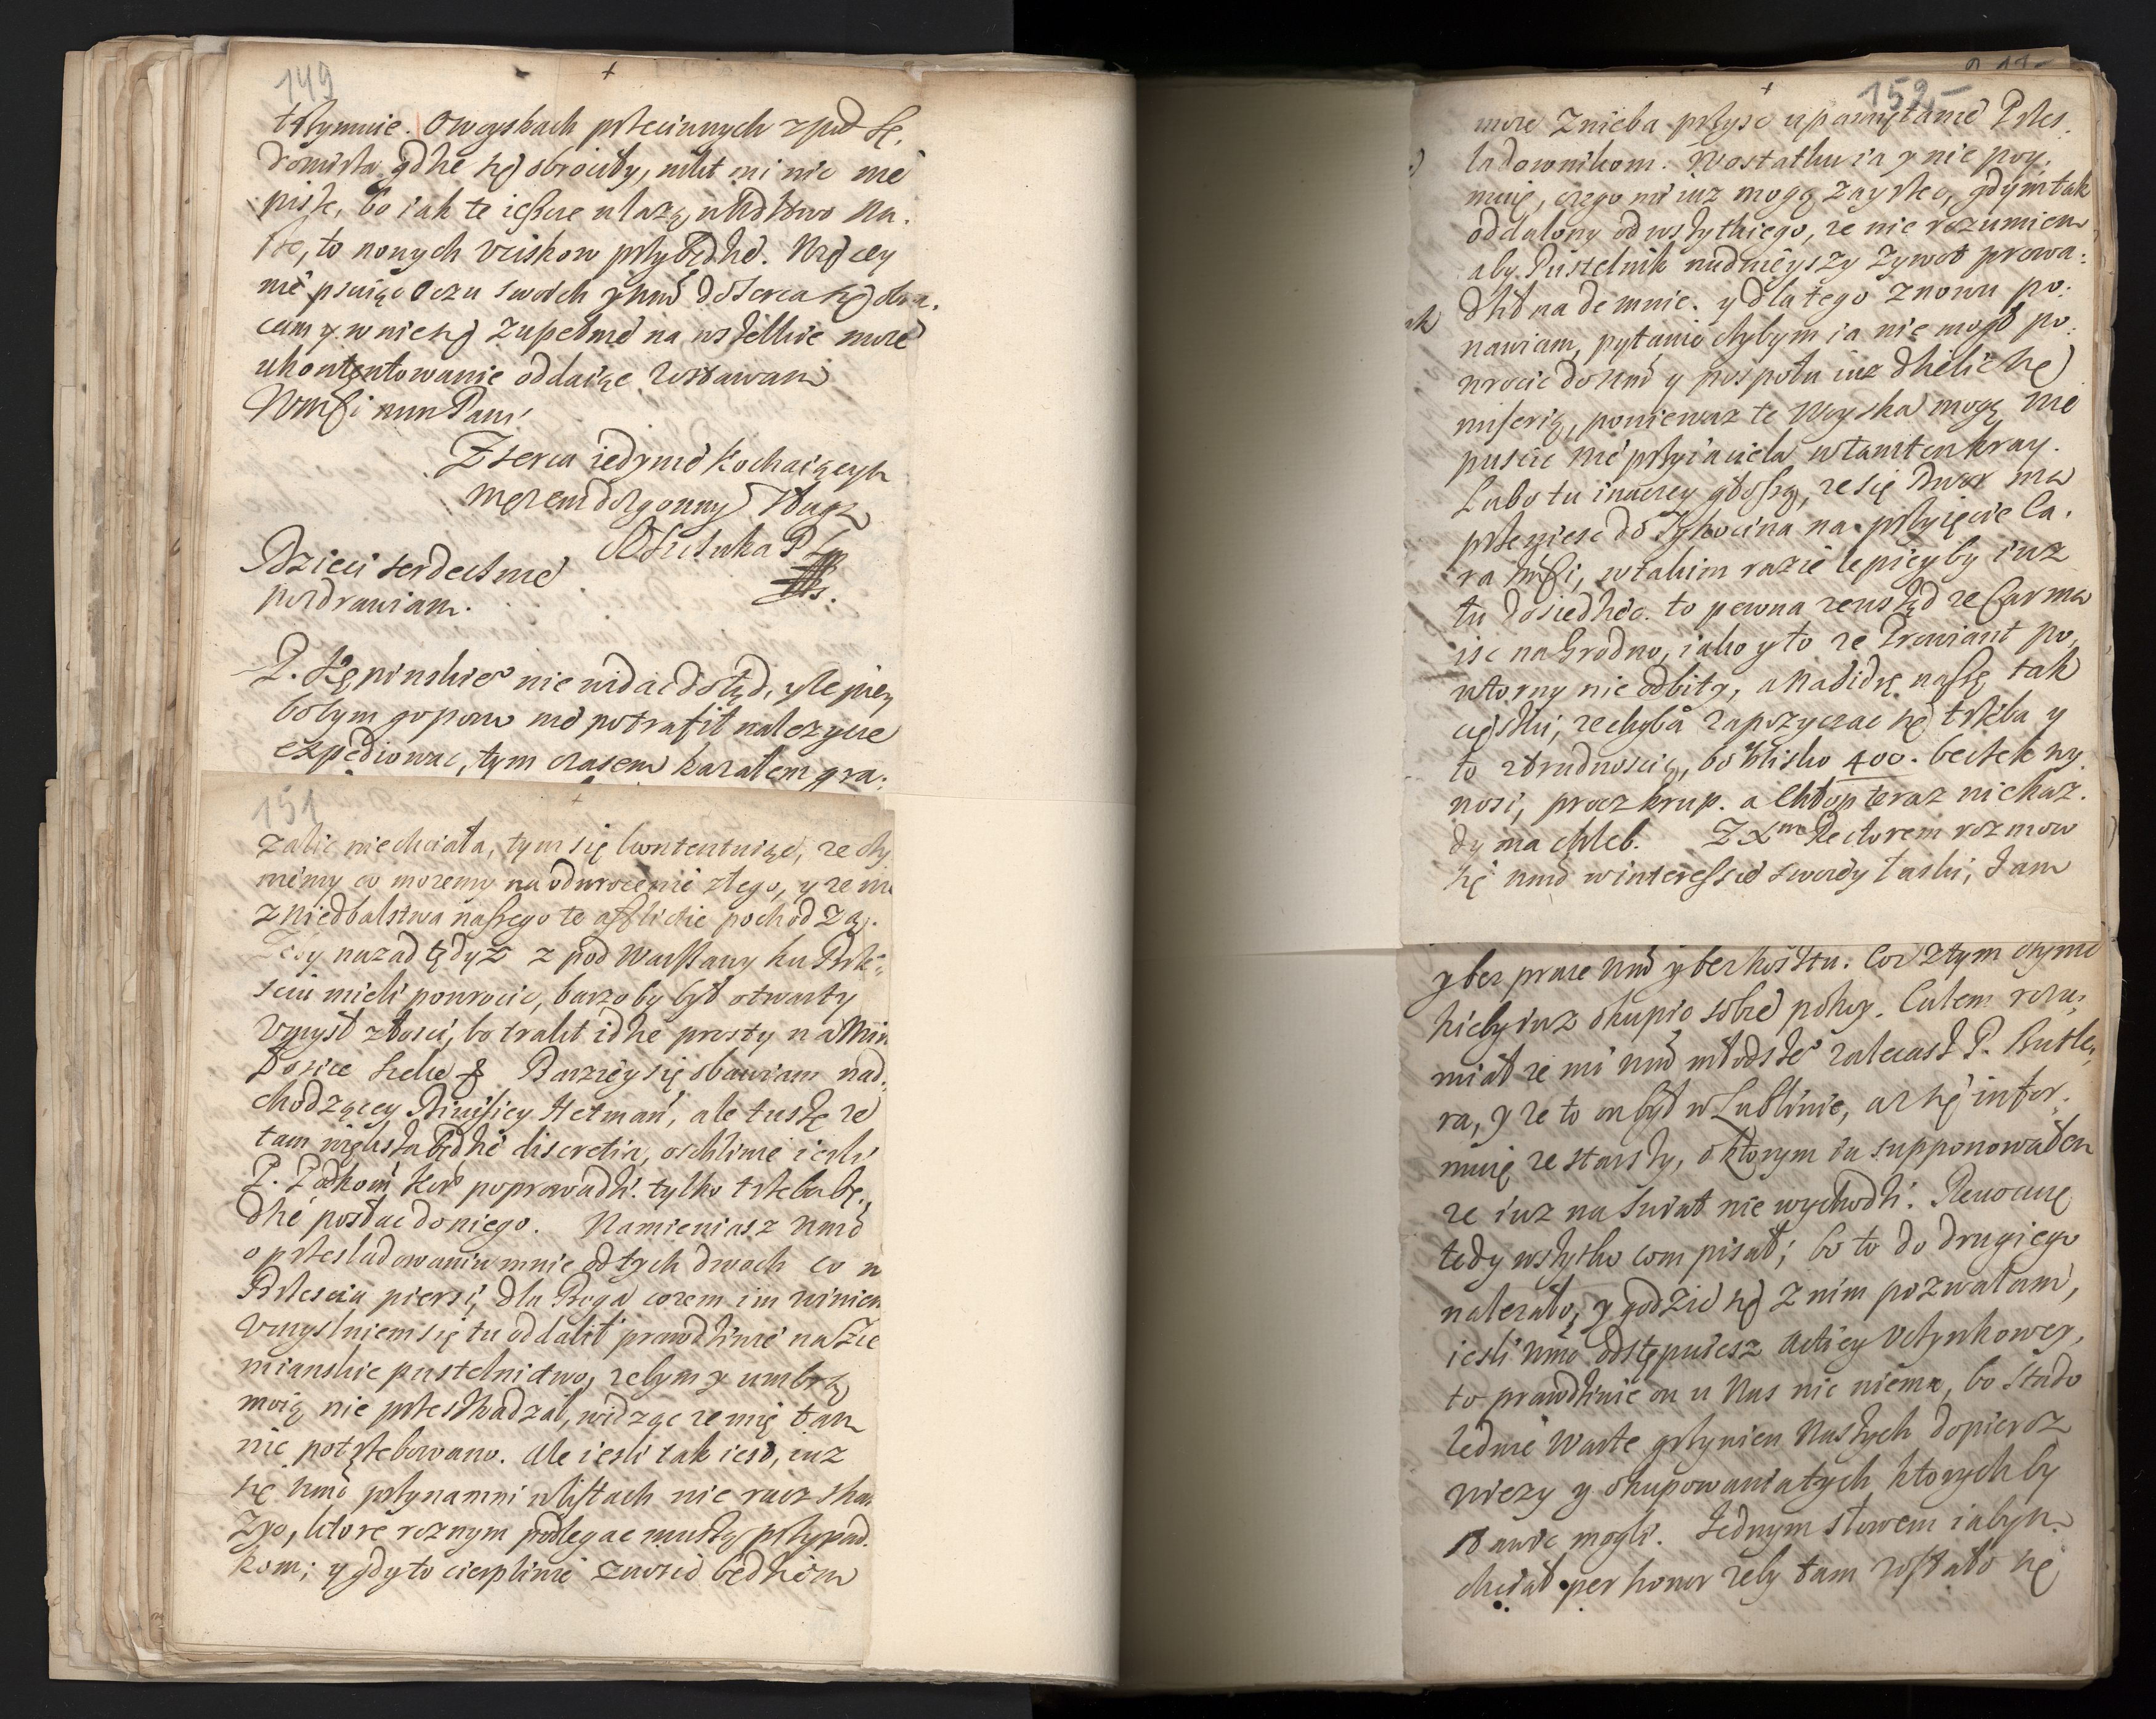 149
+
trzymnie. O woyskach przeciwnych z pod Sę,
domirza gdzie się obrociły, nikt mi nic nie
pisze, bo iak te ieszcze wlazą w Xdztwo Na.
sze, to nowych uciskow przybędzie. Więcey
nie psuiąc oczu swoich Wmć do serca się obra.
cam y w nie się zupełnie na wszelkie moie
ukontentowanie oddaiąc zostawam
Wmści mm Pani
Z serca iedynie kochaiącym
męzem dozgonny Sługa
Dzieci serdecznie
pozdrawiam.
P. Kępinskie° nie widać dotąd, y lepiey
bobym go pono nie potrafił nalezycie
expediować, tym czasem kazałem gra.
151
+
zalić nie chciała, tym się kontentuiąc, ze czy
nimy co mozemy na odwrocenie złego, y ze nie
z niedbalstwa naszego te afflictie pochodzą.
Zeby nazad tędyż z pod Warszawy ku Brze
sciu mieli powrocić, barzo by był otwarty
Umysł złosci, bo trakt idzie prosty na Min
Barziey się obawiam nad.
chodzącey Diwisiey Hetmań, ale tuszę ze
tam większa będzie discretia, osobliwie iesli
P. poprowadzi. tylko trzeba bę,
dzie posłać do niego. Namieniasz Wmć
o przesladowaniu mnie od tych dwoch co w
Brzesciu piersi, dla Boga cozem im winien
Umyslniem się tu oddalił prawdziwie na Zie
mianskie pustelnictwo, zebym y umbrą
moią nie przeszkadzał, widząc ze mię tam
nie potrzebowano. Ale iesli tak iest, iuz
się Wmć przynamni w listach nie racz skar
zyc, ktore roznym podlegac muszą przypad.
kom; y gdy to cierpliwie znosić będziem
152
+
może z nieba przysc upamiętanie Przes
ladownikom. W ostatku ia y nie poy.
muię, czego mi iuz mogą zayrzeć, gdym tak
oddalony od wszytkiego, ze nie rozumiem
aby Pustelnik nudnieyszy zywot prowa:
dził nademnie. y dlatego znowu po:
nawiam pytanie chybym ia nie mogł po,
wrocić do Wmć y pospołu iuz dzielić się
miserią, poniewaz te Woyska mogą nie
puscić nieprzyiaciela w tamten kray.
Lubo tu inaczey głoszą, ze się Dwor ma
przeniesc do Tykocina na przyięcie Ca.
ra Jmści, w takim razie lepieyby iuz
tu dosiedzieć. to pewna zewsząd ze Car ma
isc na Grodno, iako y to ze Prowiant po,
wtorny nie odbity, a na Bidzę naszę tak
cięszki, ze chyba zapozyczac się trzeba y
to z trudnoscią, bo blisko 400. beczek wy
nosi, procz krup. a Chłop teraz nie kaz.
dy ma chleb. Z X^me Rectorem rozmow
się Wmć w interessie swoiey łaski, Jam
y bez prace Wmć y bez kosztu. Coz z tym czynić
kiedy iuz okupić sobie pokoy. Całem rozu,
miał ze mi Wmć młodsze° zalecasz P. Butle,
ra, y ze to on był w Lublinie, az się infor.
muię ze starszy, o ktorym ia supponowałem
ze iuz na swiat nie wychodzi. Rewocuię
tedy wszytko com pisał; bo to do drugiego
nalezało, y godzić się z nim pozwalam,
iesli Wmć odstępuiesz Actiey Uczynkowey,
to prawdziwie on u Nas nic nie ma, bo stado
ledwie warte grzywien Naszych dopieroz
wiezy y okupowania tych ktorych by
stawić mogli. Jednym słowem iabym
chciał per honor zeby tam zostało się